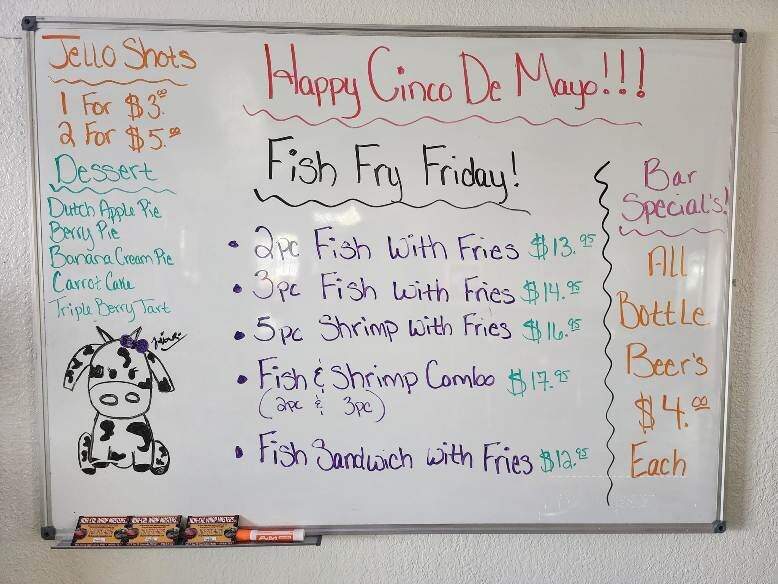 Happy Cinco De Mayo!!!
Jello Shots
1 For $3.00
2 For $5.00
Dessert
Dutch Apple Pie
Berry Pie
Banana Cream Pie
Carrot Cake
Triple Berry Tart
Fish Fry Friday!
• 2pc Fish With Fries $13.95
• 3pc Fish with Fries $14.95
• 5pc Shrimp with Fries $16.95
• Fish & Shrimp Combo $17.95
(2pc & 3pc)
• Fish Sandwich with Fries $12.95
Bar
Special's!
All
Bottle
Beer's
$4.00
Each